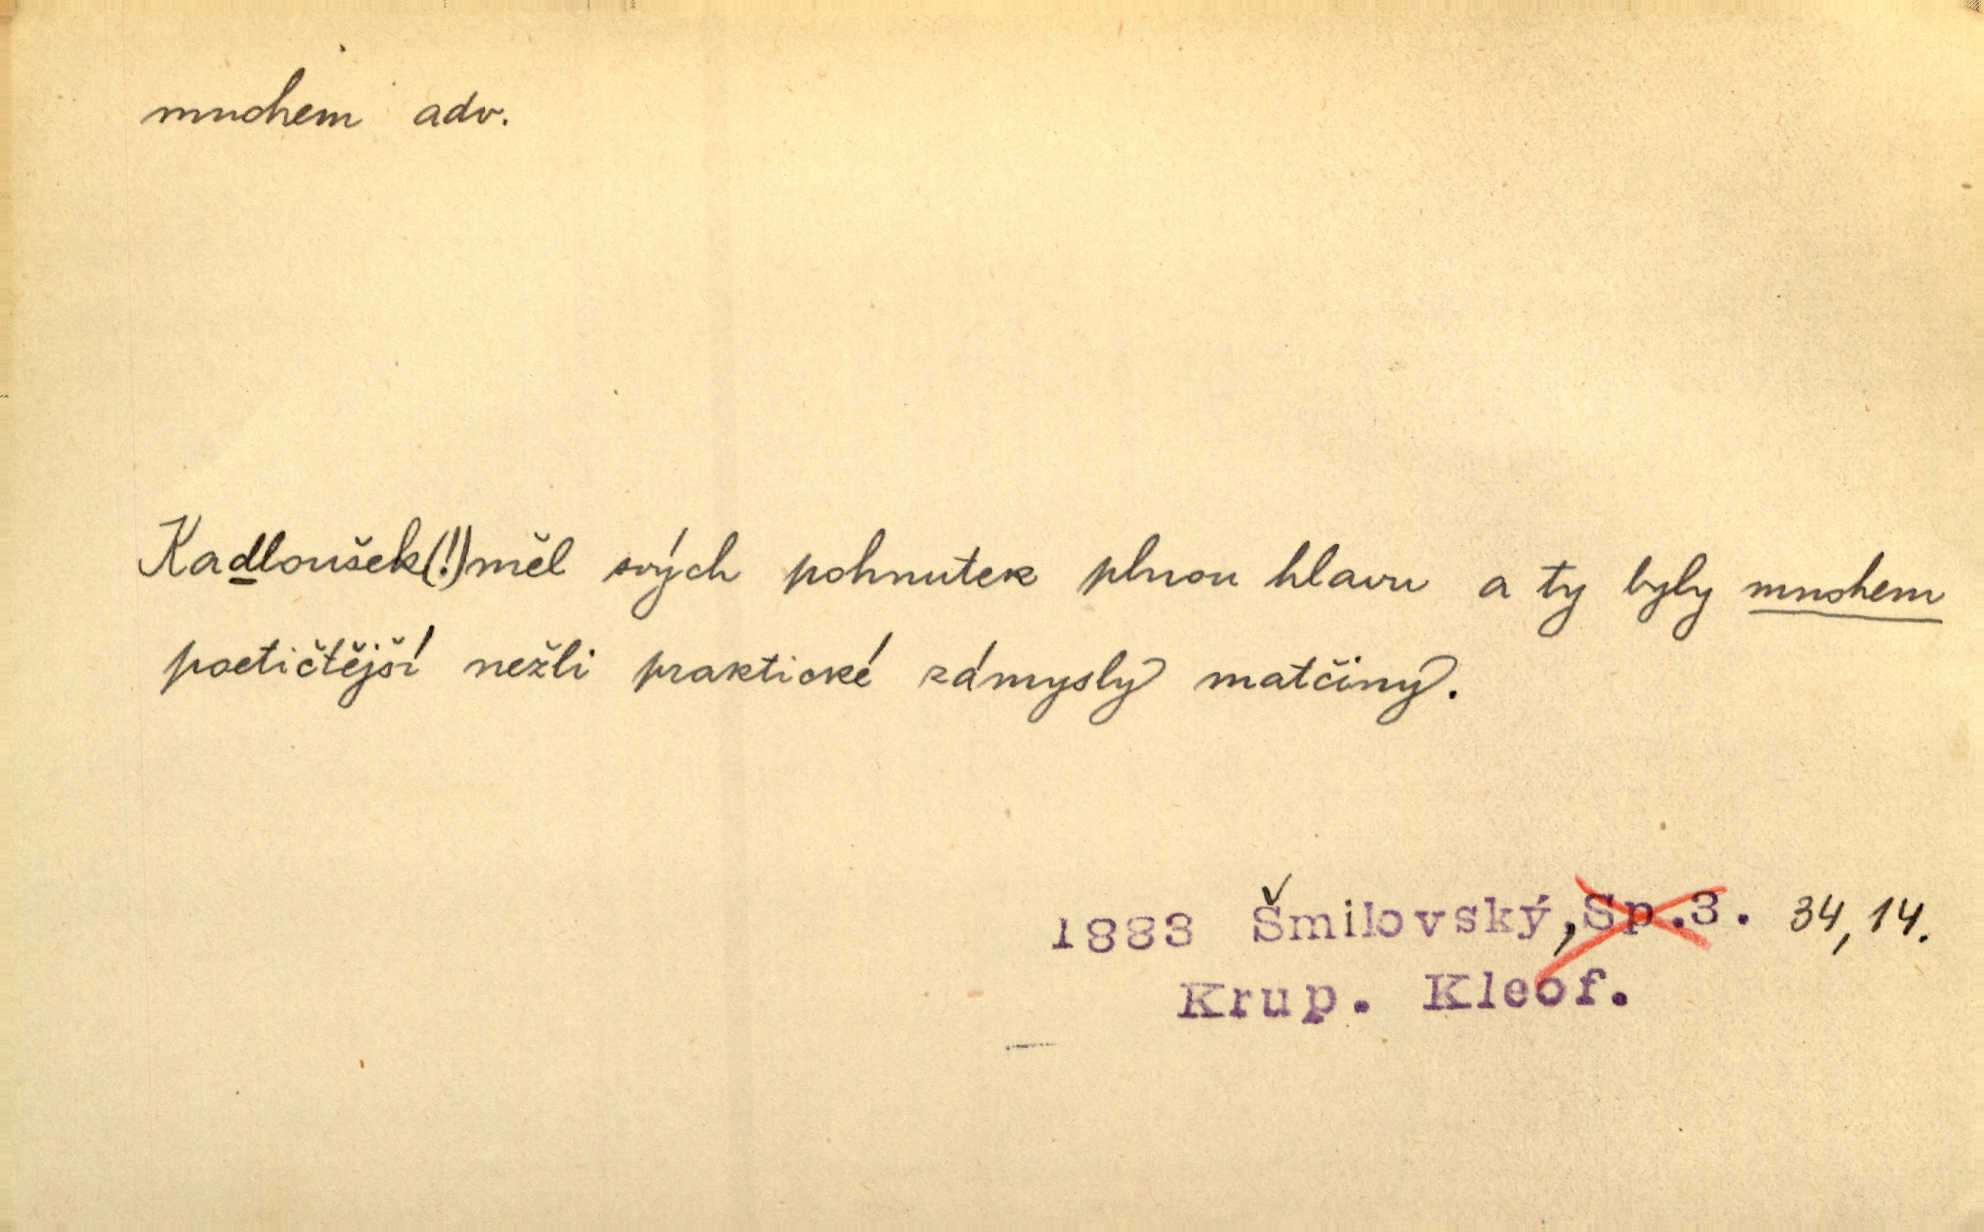 mnohem adv.
Kadloušek(!) měl svých pohnutek plnou hlavu a ty byly mnohem
poetičtější nežli praktické zámysly matčiny.
1883 Šmilovský, Sp.3. 34,14.
Krup. Kleof.